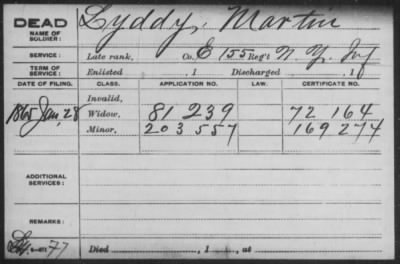 DEAD Lyddy, Martin
NAME OF SOLDIER:
SERVICE: Late rank, Co. E 155 Reg't N. Y. Inf
TERM OF SERVICE: Enlisted , 1 Discharged , 1
DATE OF FILING. CLASS. APPLICATION NO. LAW. CERTIFICATE NO.
Invalid,
1865 Jan, 28 Widow, 81 239 72 164
Minor, 203 557 169 274
ADDITIONAL SERVICES:
REMARKS:
77 Died , 1 , at